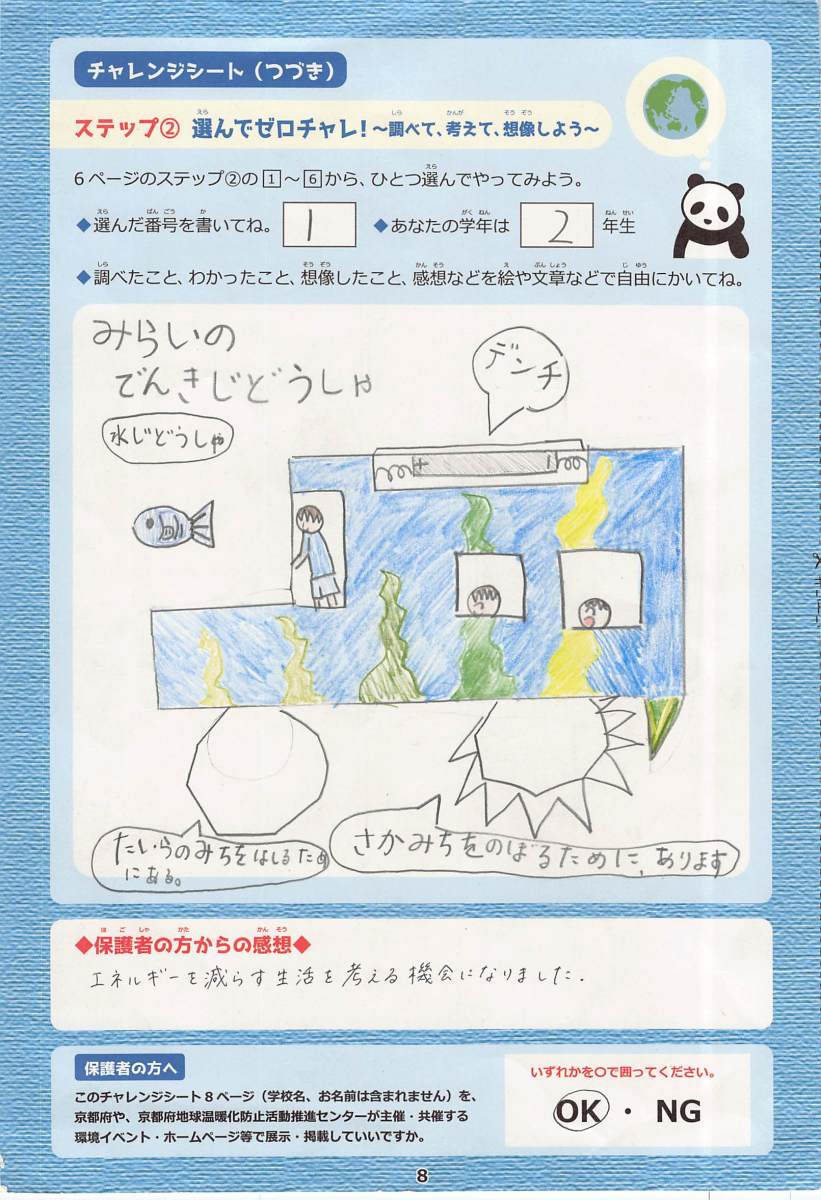 チャレンジシート（つづき）
ステップ② 選んでゼロチャレ！～調べて、考えて、想像しよう～
6ページのステップ②の1～6から、ひとつ選んでやってみよう。
◆選んだ番号を書いてね。 1 ◆あなたの学年は 2 年生
◆調べたこと、わかったこと、想像したこと、感想などを絵や文章などで自由にかいてね。
みらいの
でんきじどうしゃ
デンチ
水じどうしゃ
+ -
たいらのみちをはしるため
にある。
さかみちをのぼるために、あります
◆保護者の方からの感想◆
エネルギーを減らす生活を考える機会になりました.
保護者の方へ
このチャレンジシート8ページ（学校名、お名前は含まれません）を、
京都府や、京都府地球温暖化防止活動推進センターが主催・共催する
環境イベント・ホームページ等で展示・掲載していいですか。
いずれかを○で囲ってください。
OK ・ NG
8